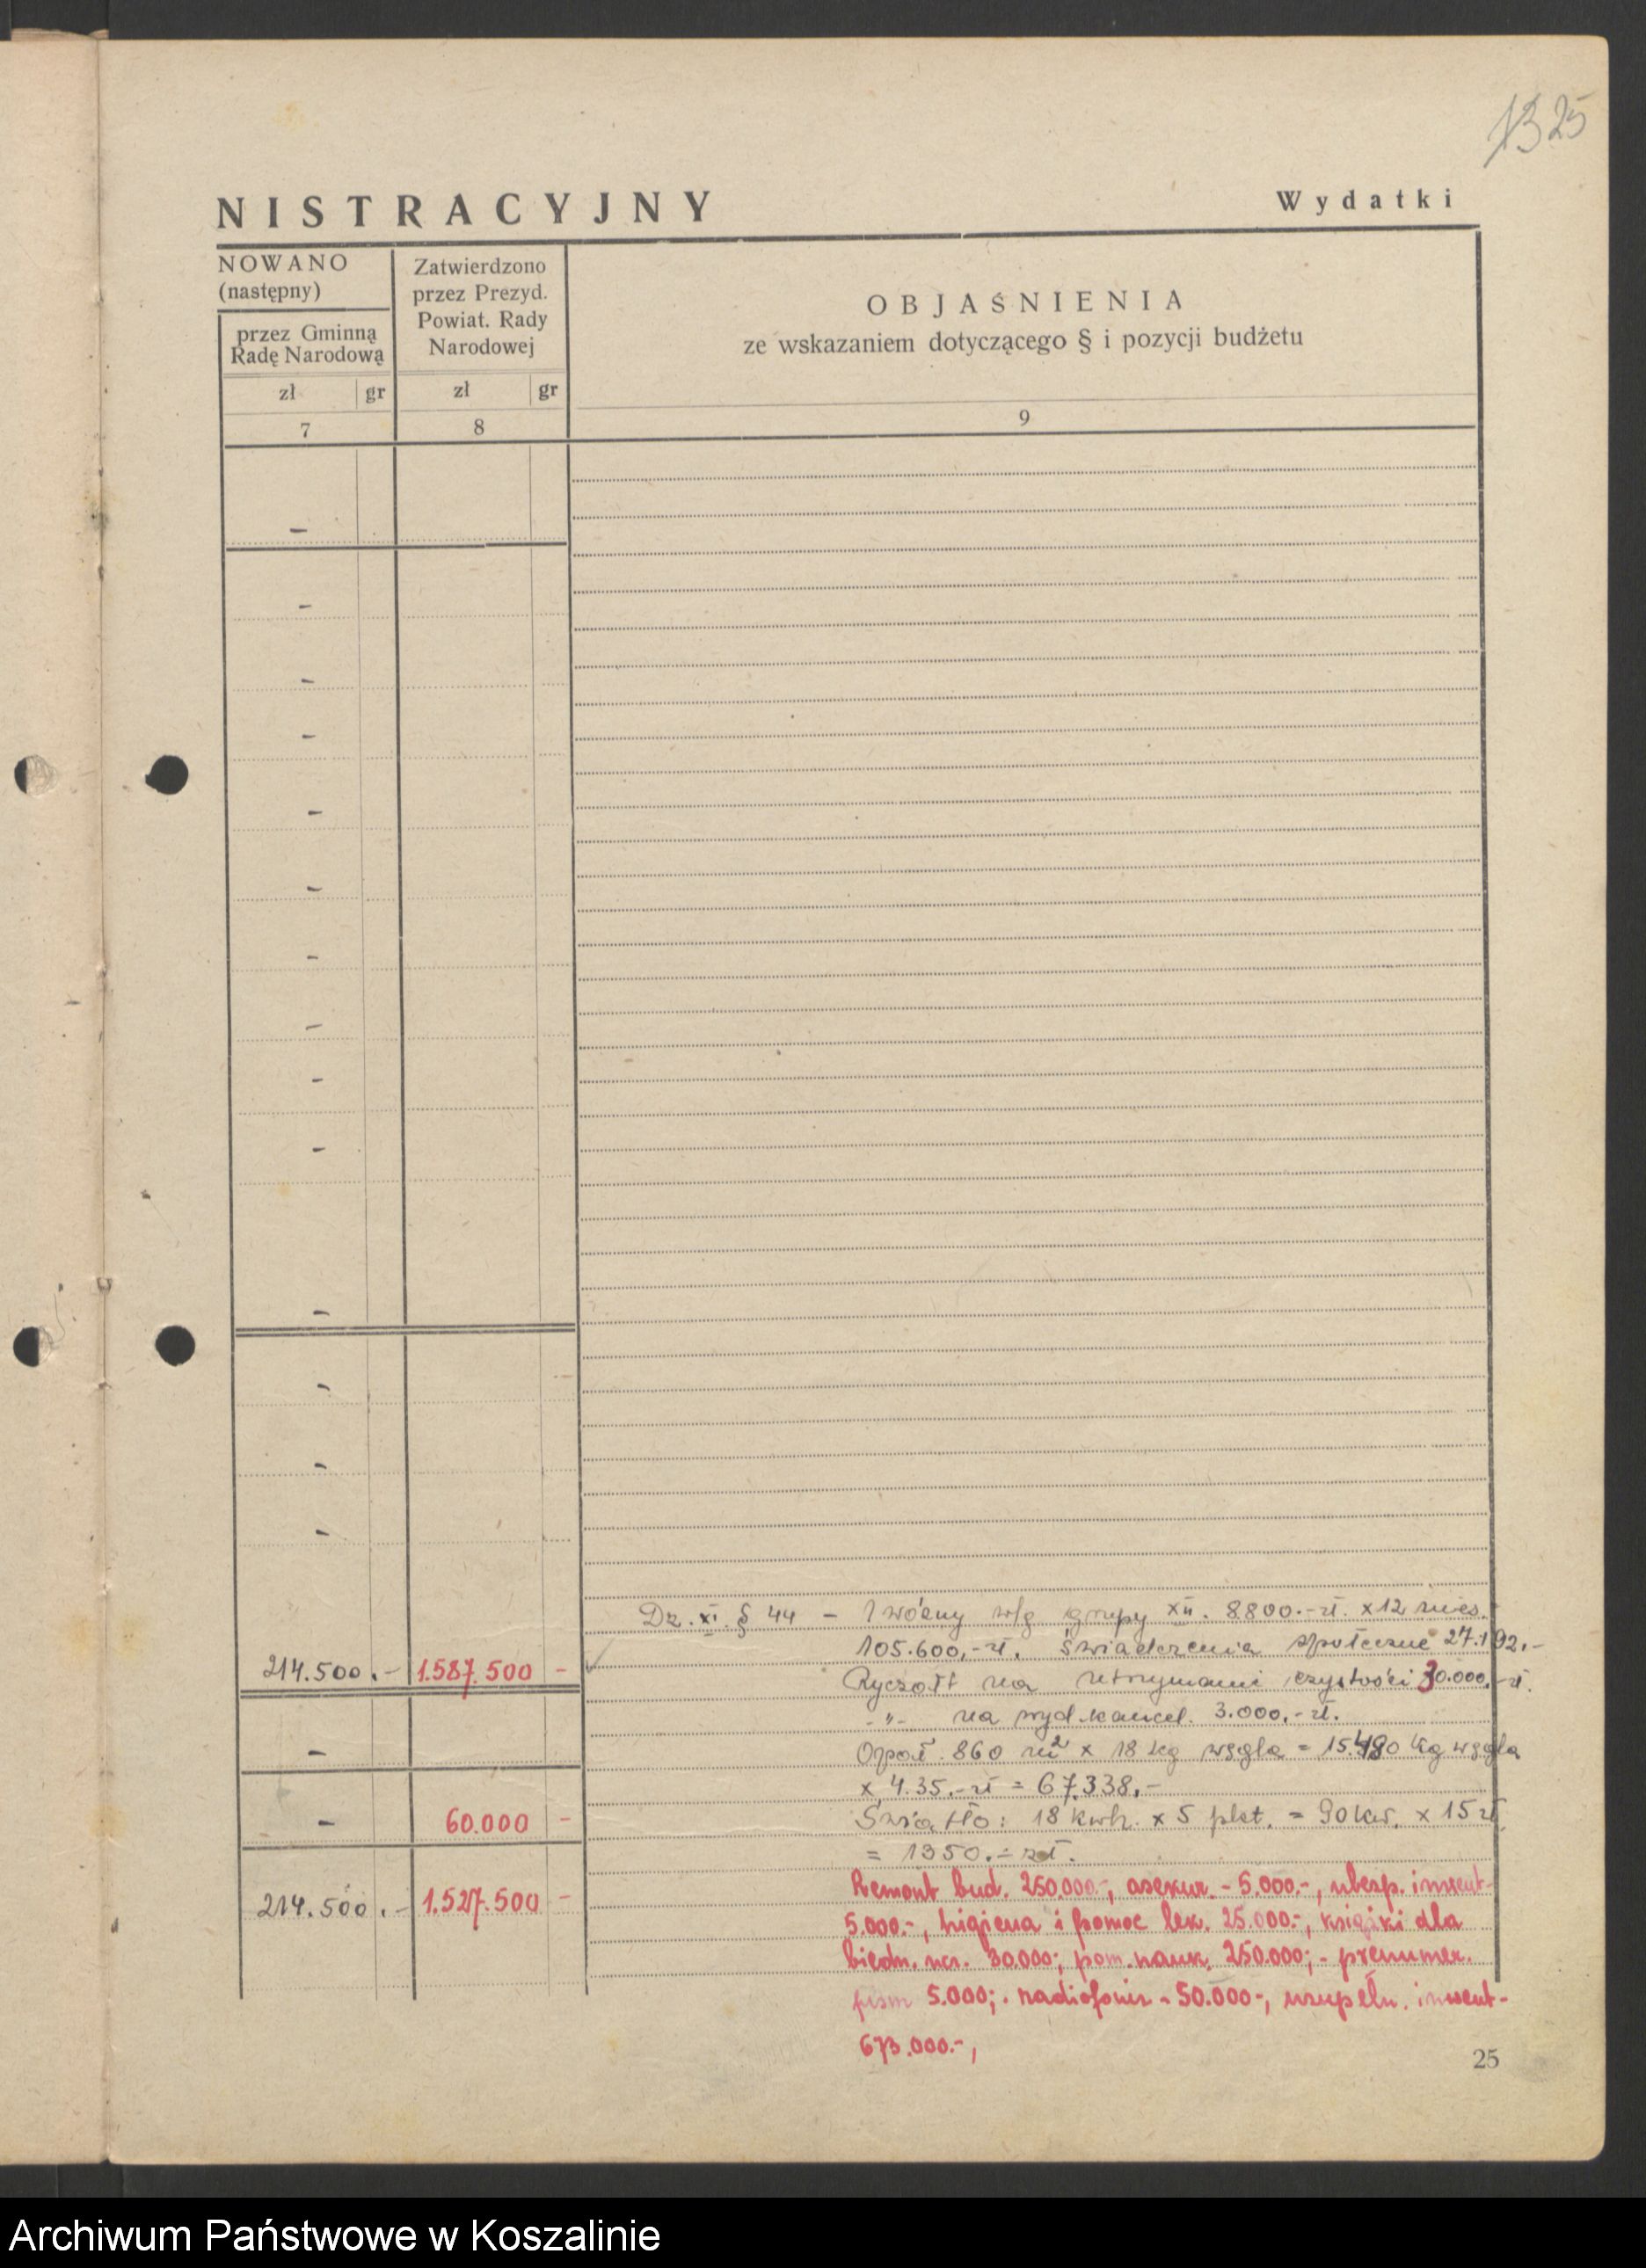 1325
NISTRACYJNY
Wydatki
NOWANO
(następny)
przez Gminną
Radę Narodową
zł gr
7
Zatwierdzono
przez Prezyd.
Powiat. Rady
Narodowej
zł gr
8
OBJAŚNIENIA
ze wskazaniem dotyczącego § i pozycji budżetu
9
-
-
-
-
-
-
-
-
-
-
-
-
-
-
214.500.- 1.587.500 -
-
- 60.000 -
214.500.- 1.527.500 -
Dz. XI. § 44 - 1 woźny w/g grupy XII. 8800.-zł. x 12 mies.
105.600.-zł. Świadczenia społeczne 27.192.-
Ryczałt na utrzymanie czystości 30.000.-zł.
-"- na wyd. kancel. 3.000.-zł.
Opał. 860 m² x 18 kg węgla = 15.480 kg węgla
x 4.35.-zł = 67.338.-
Światło: 18 kwh. x 5 pkt. = 90 kw. x 15 zł
= 1350.- zł.
Remont bud. 250.000.-, asekur. - 5.000.-, ubesp. inwent-
5.000.-, higiena i pomoc lek. 25.000.-, książki dla
biedn. ucz. 30.000; pom. nauk. 250.000; - prenumer.
pism 5.000; - radiofoniz - 50.000-, uzupełn. inwent-
673.000.-,
25
Archiwum Państwowe w Koszalinie